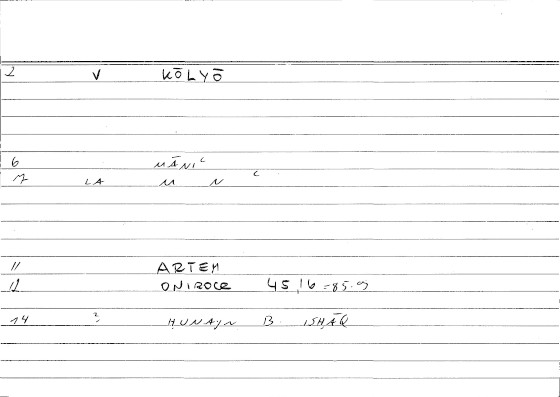 2 V KŌLYŌ
6 MĀNIᶜ
7 LA M N ᶜ
11 ARTEM
12 ONIROCR 45,16 = 85.9
14 ? ḤUNAJN B. ISḤĀQ